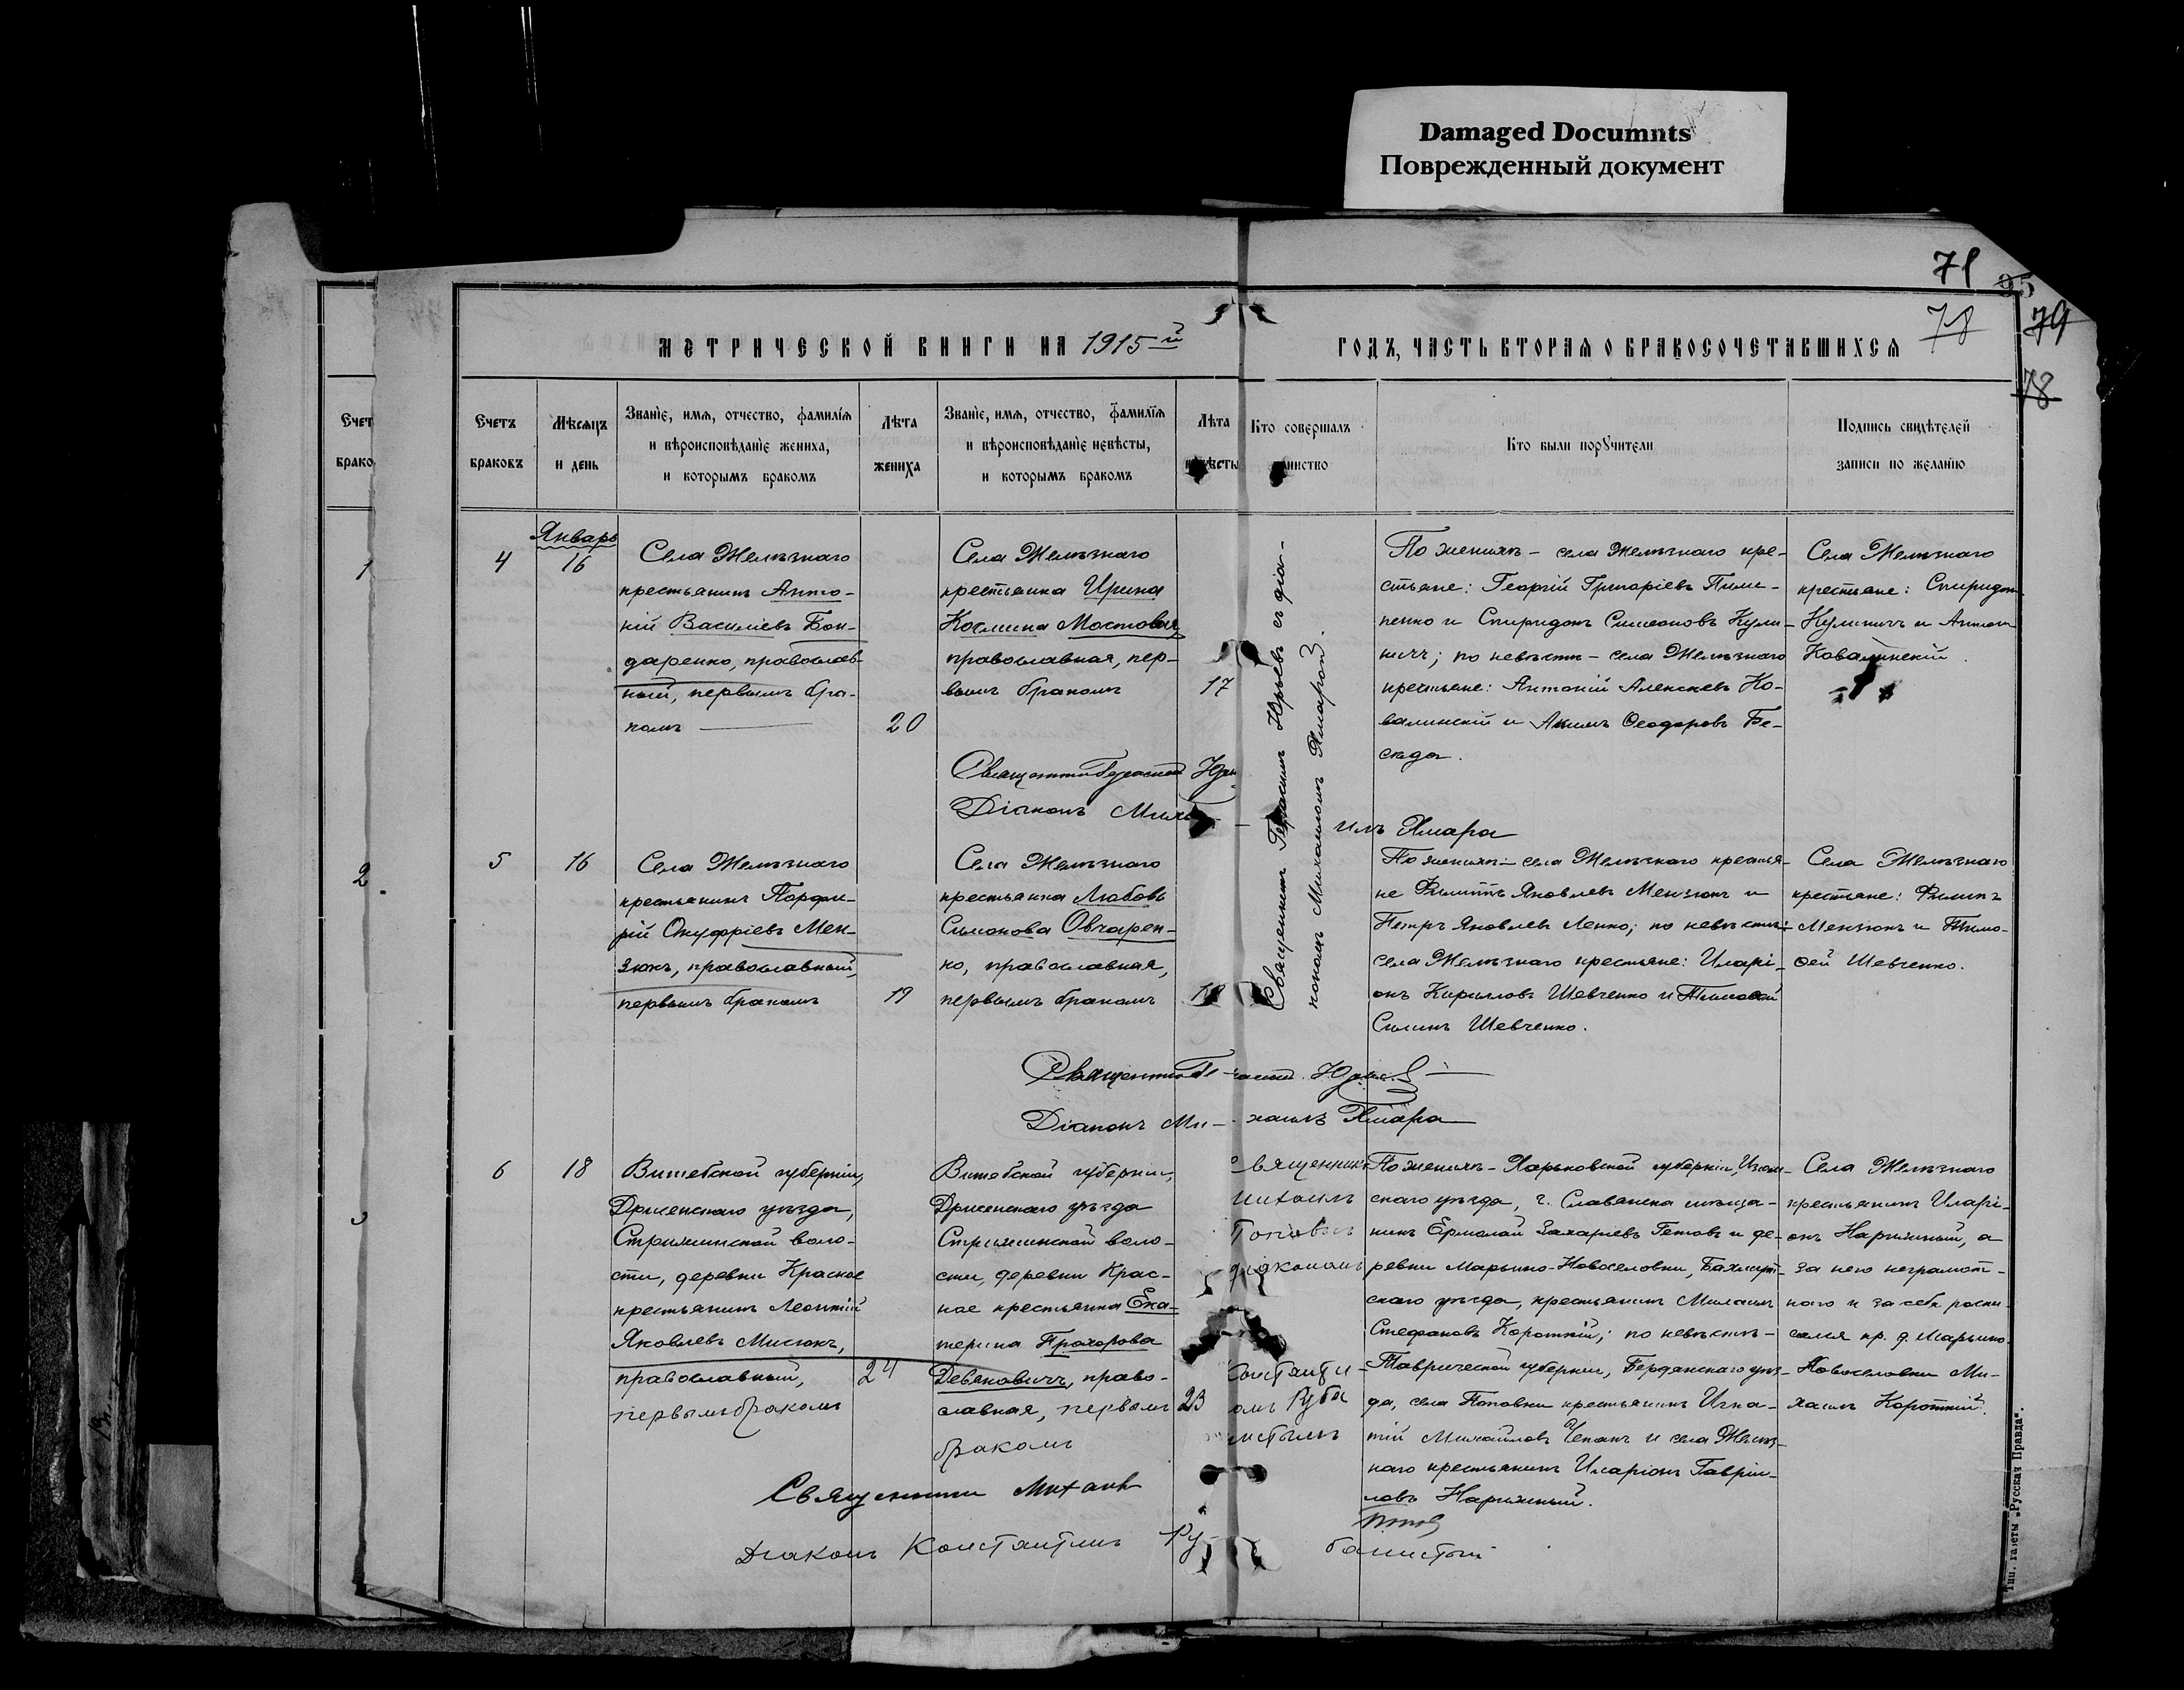 Damaged Documnts
Поврежденный документ
71
95
78
79
78
МЕТРИЧЕСКОЙ КНИГИ НА 1915й
ГОДЪ, ЧАСТЬ ВТОРАЯ О БРАКОСОЧЕТАВШИХСЯ
Счет
брако
Счетъ
браковъ
Мѣсяцъ
и день
Званіе, имя, отчество, фамилія
и вѣроисповѣданіе жениха,
и которымъ бракомъ
Лѣта
жениха
Званіе, имя, отчество, фамилія
и вѣроисповѣданіе невѣсты,
и которымъ бракомъ
Лѣта
невѣсты
Кто совершалъ
таинство
Кто были поручители
Подпись свидѣтелей
записи по желанію
1
2
3
4
Январь
16
Села Желѣзнаго
крестьянинъ Анто-
ній Василіевъ Бон-
даренко, православ-
ный, первымъ бра-
комъ
20
Села Желѣзнаго
крестьянка Ирина
Космина Мостовая,
православная, пер-
вымъ бракомъ
17
Священникъ Герасимъ Юрьевъ съ діа-
кономъ Михаиломъ Ямарой.
По женихѣ - села Желѣзнаго кре-
стьяне: Георгій Григоріевъ Пили-
пенко и Спиридонъ Симеоновъ Кули-
ничъ; по невѣстѣ - села Желѣзнаго
крестьяне: Антоній Алексѣевъ Ко-
валинскій и Акимъ Ѳеодоровъ Бе-
седа.
Села Желѣзнаго
крестьяне: Спиридон
Кулиничъ и Антоній
Ковалинскій.
Священникъ Герасимъ Юрь
Діаконъ Миха-
илъ Ямара
5
16
Села Желѣзнаго
крестьянинъ Порфи-
рій Онуфріевъ Мен-
зюкъ, православный,
первымъ бракомъ
19
Села Желѣзнаго
крестьянка Любовь
Симонова Овчарен-
ко, православная,
первымъ бракомъ
По женихѣ - села Желѣзнаго крестья-
не Филиппъ Яковлевъ Мензюкъ и
Петръ Яковлевъ Ленко; по невѣстѣ:
села Желѣзнаго крестьяне: Иларі-
онъ Кириловъ Шевченко и Тимоѳей
Силинъ Шевченко.
Села Желѣзнаго
крестьяне: Филипъ
Мензюкъ и Тимо-
ѳей Шевченко.
Священникъ Ге-расимъ Юрьевъ
Діаконъ Ми-хаилъ Ямара
6
18
Витебской губерніи,
Дрисенскаго уѣзда,
Стрижинской воло-
сти, деревни Красное
крестьянинъ Леонтій
Яковлевъ Мисюкъ,
православный,
первымъ бракомъ
24
Витебской губерніи,
Дрисенскаго уѣзда
Стрижинской воло-
сти, деревни Крас-
ное крестьянка Ека-
терина Прохорова
Девяковичъ, право-
славная, первымъ
бракомъ
23
священникъ
михаилъ
Поповъ съ
діакономъ
Константи
омъ Руба
истымъ
По женихѣ - Харьковской губерніи, Изюм-
скаго уѣзда, г. Славянска мѣща-
нинъ Ермолай Захаріевъ Гетовъ и де-
ревни Марьино-Новоселовки, Бахмут-
скаго уѣзда, крестьянинъ Михаилъ
Стефановъ Короткій; по невѣстѣ -
Таврической губерніи, Бердянскаго уѣз-
да, села Поповки крестьянинъ Игна-
тій Михайловъ Чепакъ и села Желѣз-
наго крестьянинъ Иларіонъ Гавріи-
ловъ Нарижный.
Села Желѣзнаго
крестьянинъ Иларі-
онъ Нарижный, а
за него неграмот-
наго и за себя роспи-
сался кр. д. Марьино-
Новоселовки Ми-
хаилъ Короткій.
Священникъ Михаилъ
Поповъ
Діаконъ Константинъ Ру-
банистый
Тип. газеты „Русская Правда".